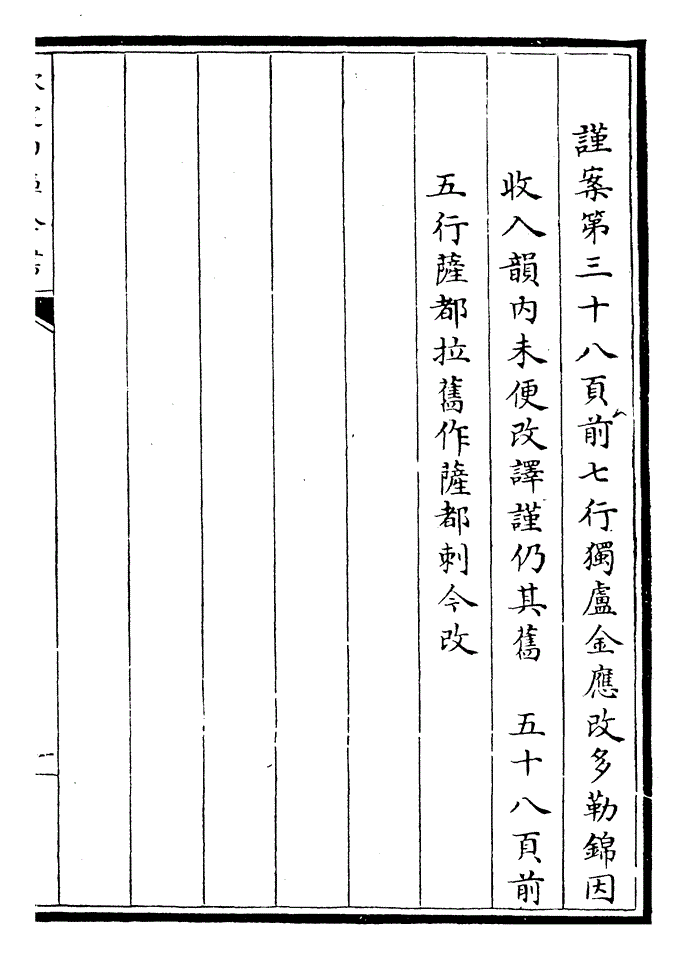 謹案第三十八頁前七行獨盧金應改多勒錦因
收入韻内未便改譯謹仍其舊　五十八頁前
五行薩都拉舊作薩都剌今改